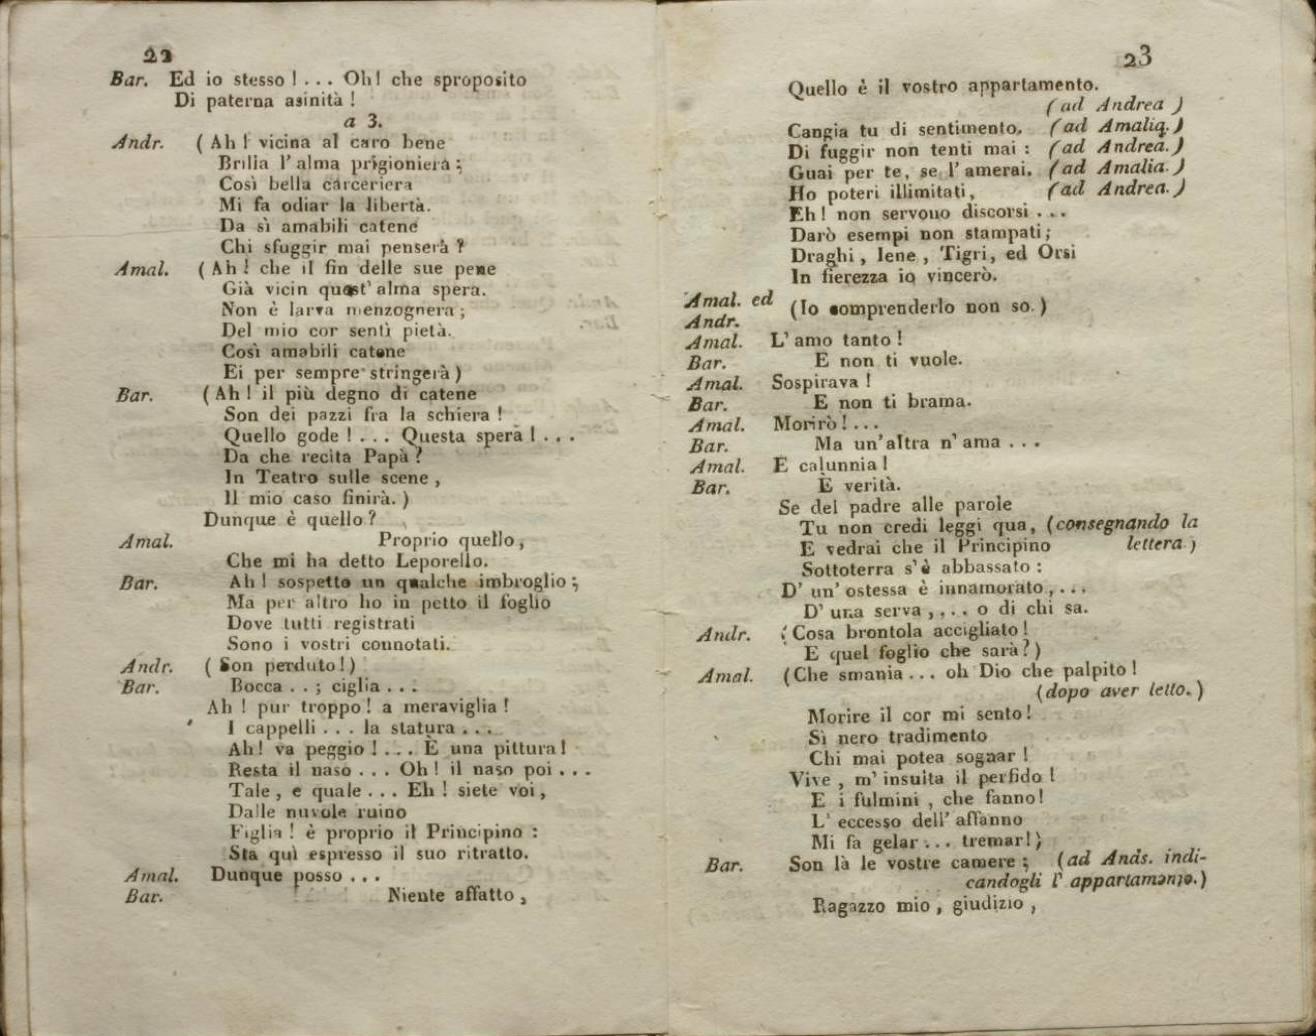 22
Bar. Ed io stesso ! . . . Oh! che sproposito
Di paterna asinità !
a 3.
Andr. ( Ah ! vicina al caro bene
Brilla l' alma prigioniera ;
Così bella carceriera
Mi fa odiar la libertà.
Da sì amabili catene
Chi sfuggir mai penserà ?
Amal. ( Ah ! che il fin delle sue pene
Già vicin quest' alma spera.
Non è larva menzognera ;
Del mio cor sentì pietà.
Così amabili catene
Ei per sempre stringerà )
Bar. ( Ah ! il più degno di catene
Son dei pazzi fra la schiera !
Quello gode ! . . . Questa spera ! . . .
Da che recita Papà ?
In Teatro sulle scene ,
Il mio caso finirà. )
Dunque è quello ?
Amal. Proprio quello ,
Che mi ha detto Leporello.
Bar. Ah ! sospetto un qualche imbroglio ;
Ma per altro ho in petto il foglio
Dove tutti registrati
Sono i vostri connotati.
Andr. ( Son perduto ! )
Bar. Bocca . . ; ciglia . . .
Ah ! pur troppo ! a meraviglia !
I cappelli . . . la statura . . .
Ah! va peggio ! . . . È una pittura!
Resta il naso . . . Oh! il naso poi . . .
Tale , e quale . . . Eh ! siete voi ,
Dalle nuvole ruino
Figlia ! è proprio il Principino :
Sta quì espresso il suo ritratto.
Amal. Dunque posso . . .
Bar. Niente affatto ,
23
Quello è il vostro appartamento.
( ad Andrea )
Cangia tu di sentimento. ( ad Amalia. )
Di fuggir non tenti mai : ( ad Andrea. )
Guai per te, se l' amerai. ( ad Amalia. )
Ho poteri illimitati, ( ad Andrea. )
Eh! non servono discorsi . . .
Darò esempi non stampati ;
Draghi , Iene , Tigri, ed Orsi
In fierezza io vincerò.
Amal. ed
Andr. (Io comprenderlo non so. )
Amal. L' amo tanto !
Bar. E non ti vuole.
Amal. Sospirava !
Bar. E non ti brama.
Amal. Morirò ! . . .
Bar. Ma un' altra n' ama . . .
Amal. È calunnia !
Bar. È verità.
Se del padre alle parole
Tu non credi leggi qua, (consegnando la
E vedrai che il Principino lettera )
Sottoterra s' è abbassato :
D' un' ostessa è innamorato , . . .
D' una serva , . . . o di chi sa.
Andr. ( Cosa brontola accigliato !
E quel foglio che sarà ? )
Amal. (Che smania . . . oh Dio che palpito !
(dopo aver letto. )
Morire il cor mi sento !
Sì nero tradimento
Chi mai potea sognar !
Vive , m' insulta il perfido !
E i fulmini , che fanno!
L' eccesso dell' affanno
Mi fa gelar . . . tremar! )
Bar. Son là le vostre camere ; (ad Ands. indi-
candogli l' appartamento.)
Ragazzo mio , giudizio ,